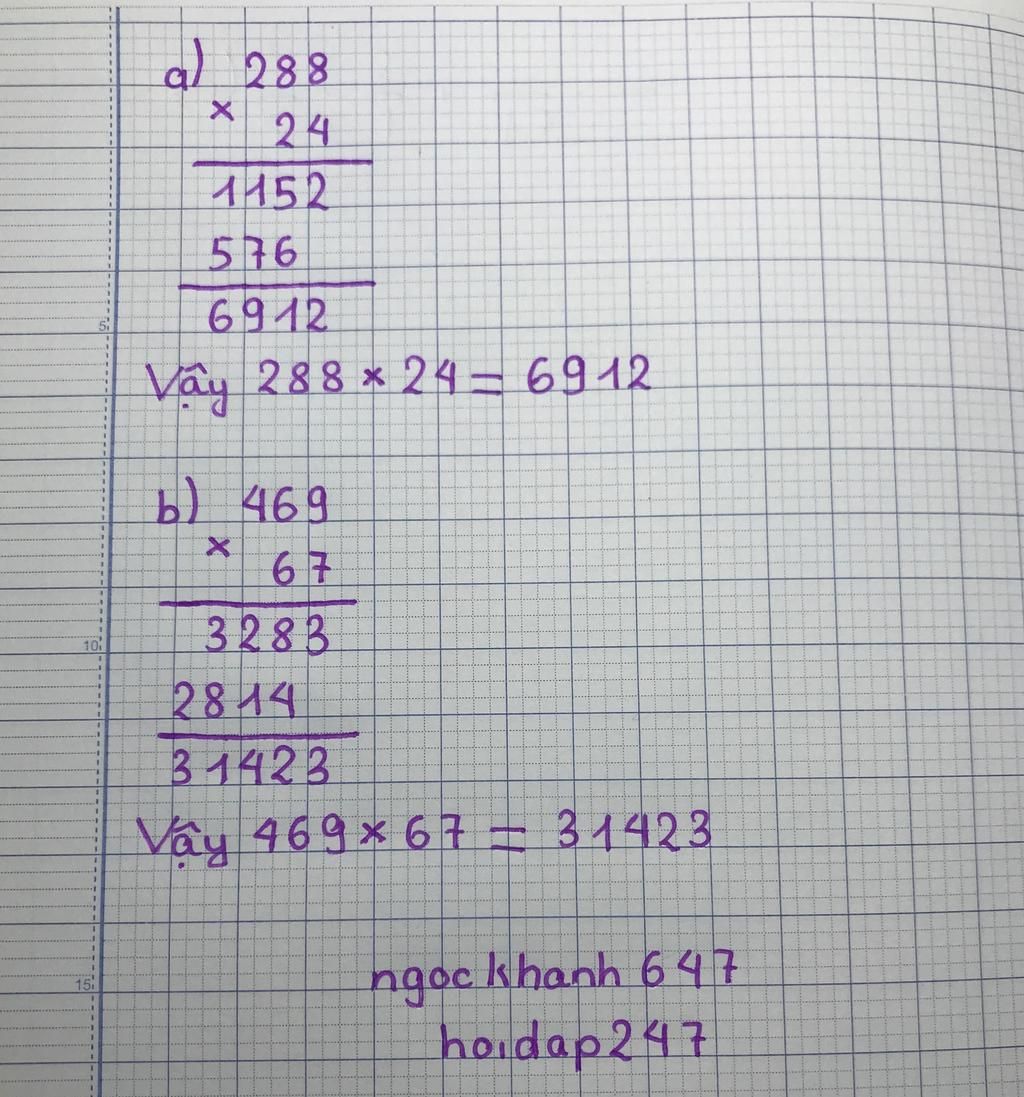 a) 288
× 24
1152
576
6912
Vậy 288 × 24 = 6912
b) 469
× 67
3283
2814
31423
Vậy 469 × 67 = 31423
ngockhanh 647
hoidap247
5
10
15